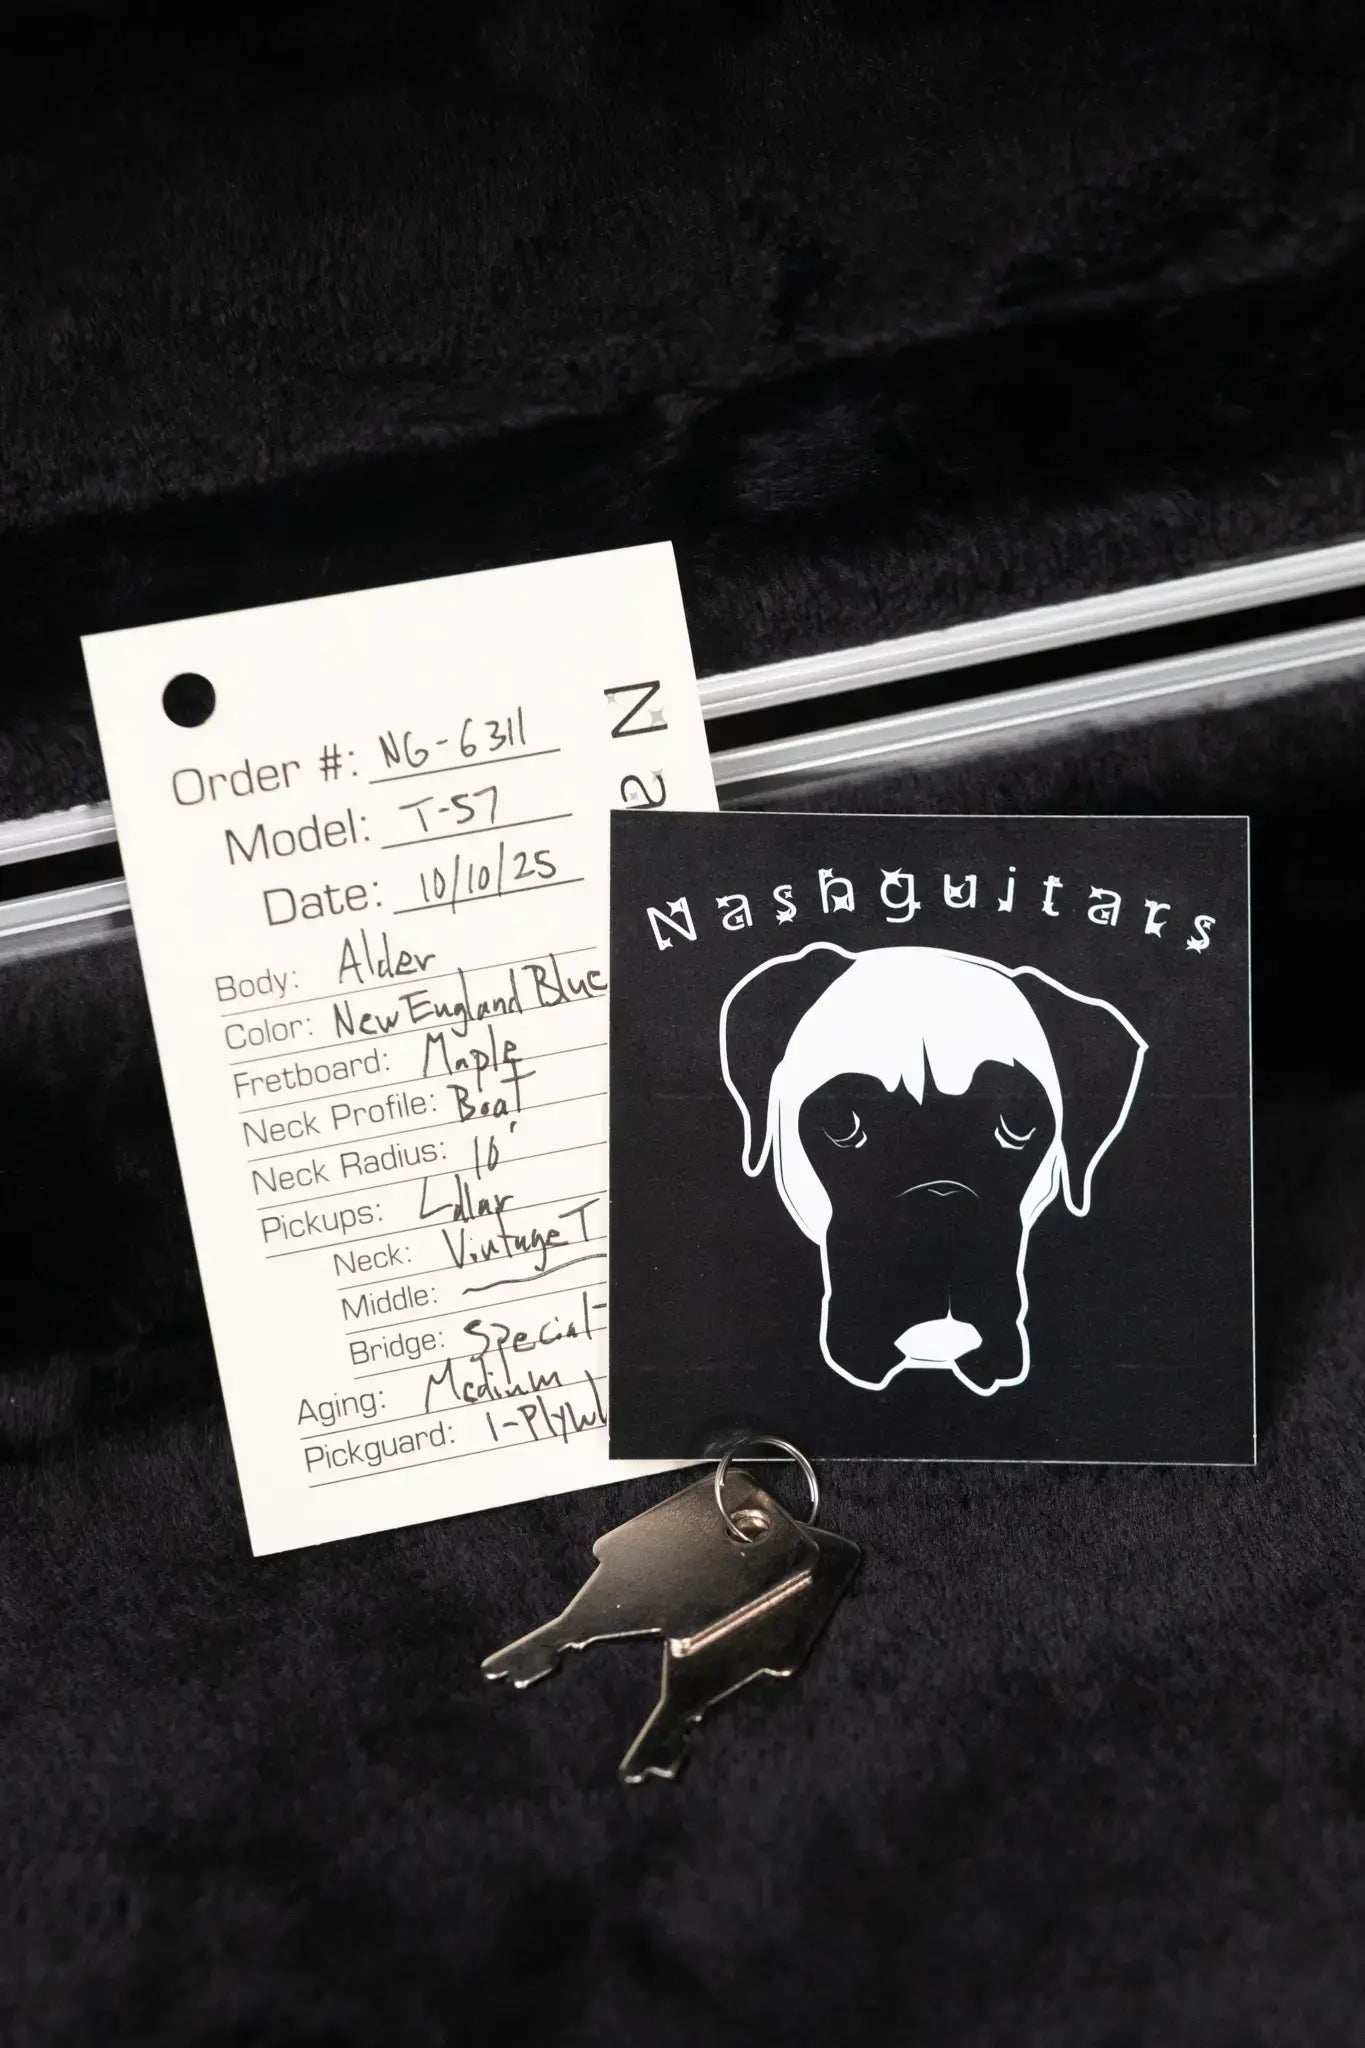 Order #: NG-6311
Model: T-57
Date: 10/10/25
Body: Alder
Color: New England Blue
Fretboard: Maple
Neck Profile: Boat
Neck Radius: 10"
Pickups: Lollar
Neck: Vintage T
Middle:
Bridge: Special-
Aging: Medium
Pickguard: 1-Ply
N a
Nashguitars